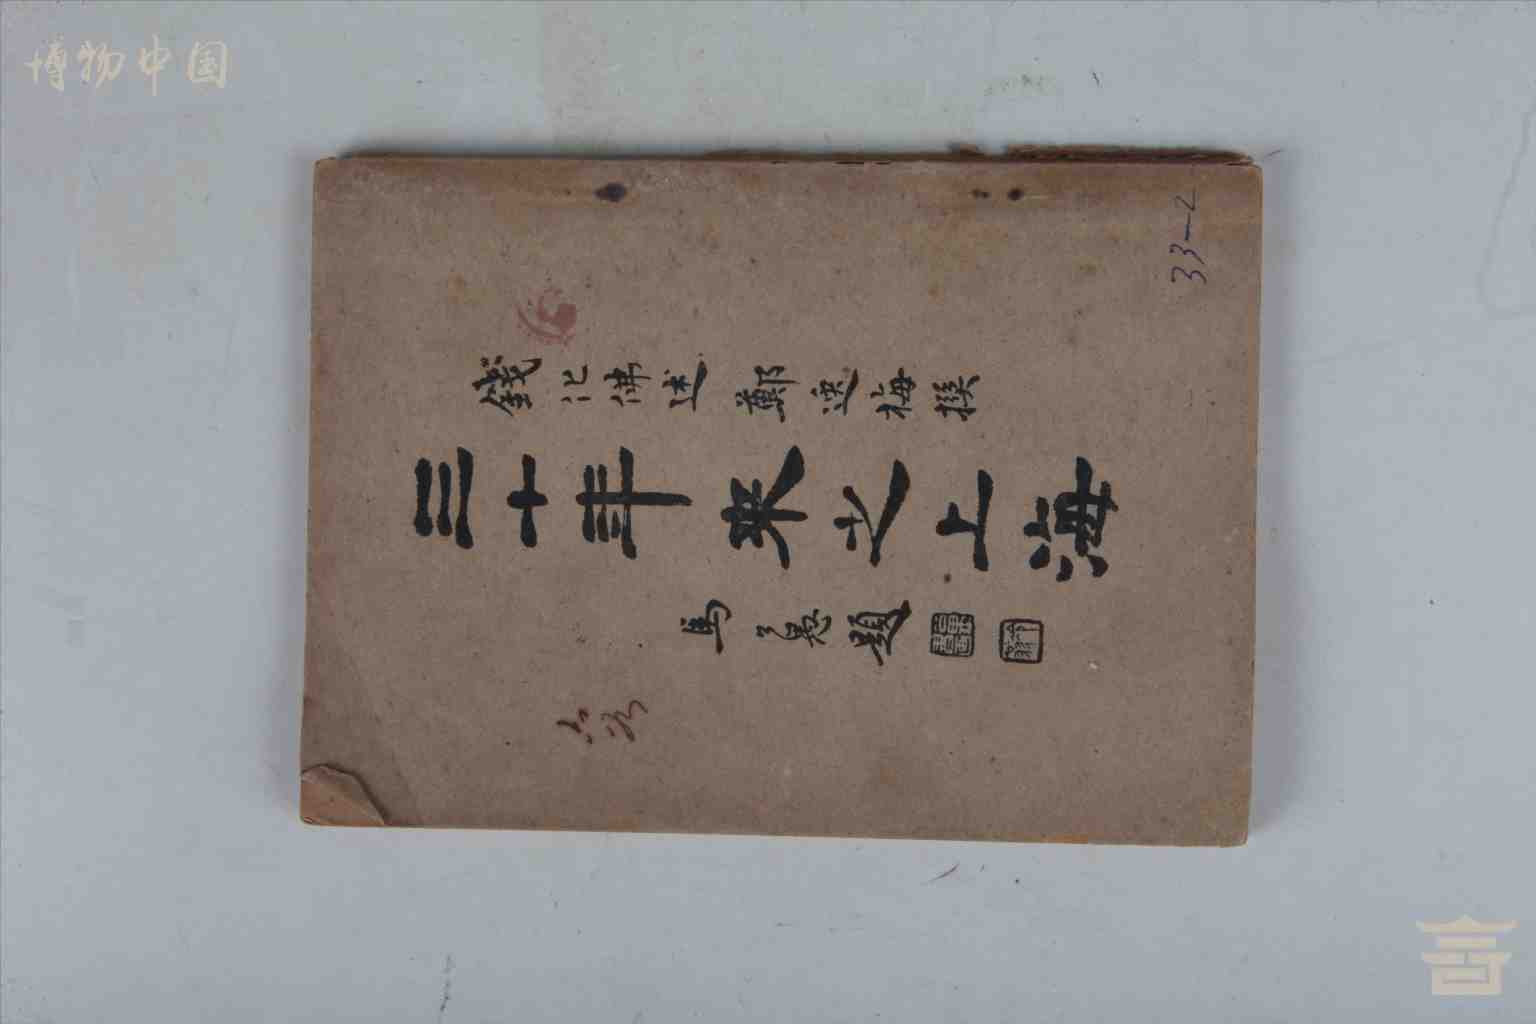 博物中国
33-2
錢化佛述 鄭逸梅撰
三十年來之上海
馬公愚題